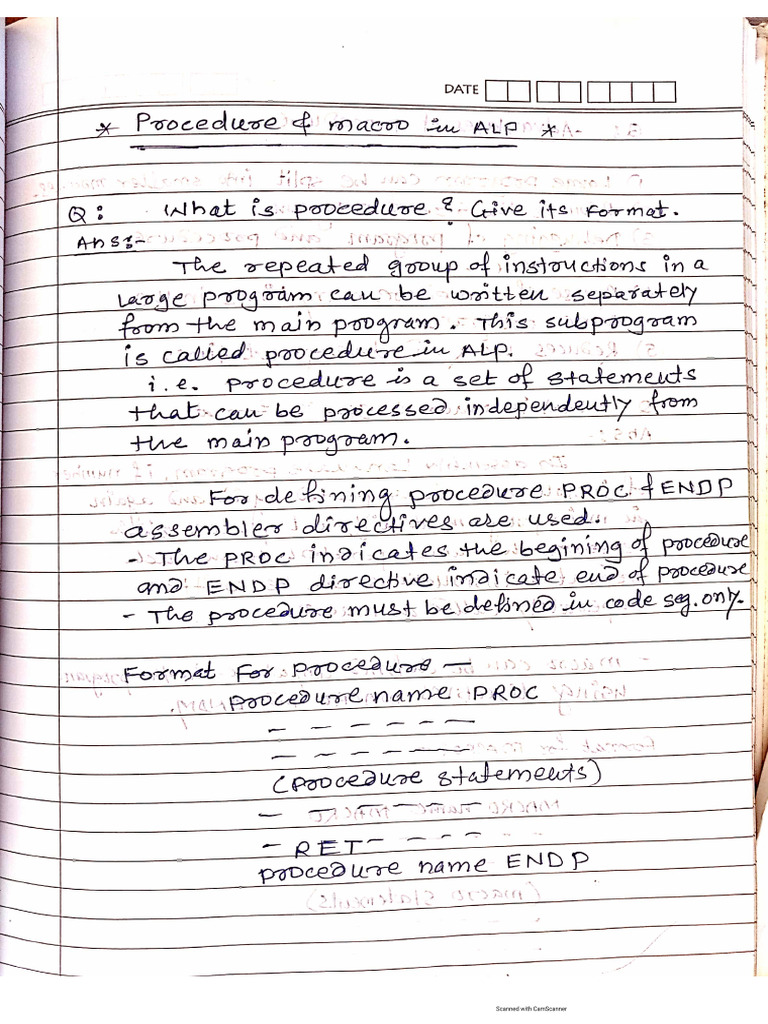 DATE
* Procedure & macro in ALP *
Q: What is procedure? Give its format.
Ans:-
The repeated group of instructions in a
large program can be written separately
from the main program. This subprogram
is called procedure in ALP.
i.e. procedure is a set of statements
that can be processed independently from
the main program.
For defining procedure PROC & ENDP
assembler directives are used.
- The PROC indicates the begining of procedure
and ENDP directive indicate end of procedure
- The procedure must be defined in code seg. only.
Format for procedure —
procedure name PROC
- - - - - -
- - - - - -
(procedure statements)
- - - - -
- RET - - - -
procedure name ENDP
Scanned with CamScanner